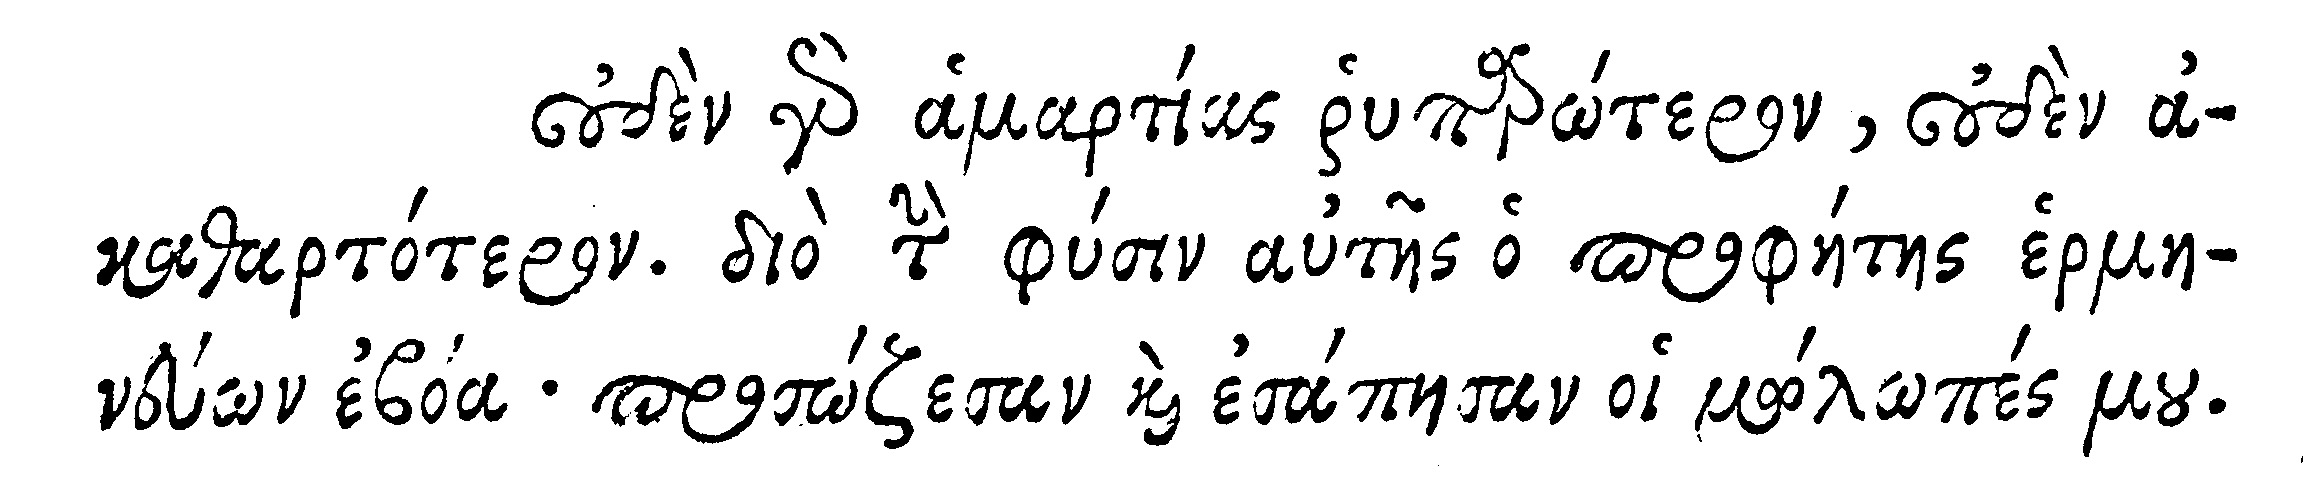 οὐδὲν γὰρ ἁμαρτίας ῥυπαρώτερον, οὐδὲν ἀ-
καθαρτότερον. διὸ τὴν φύσιν αὐτῆς ὁ προφήτης ἑρμη-
νεύων ἐβόα· προσώζεσαν καὶ ἐσάπησαν οἱ μώλωπές μου.